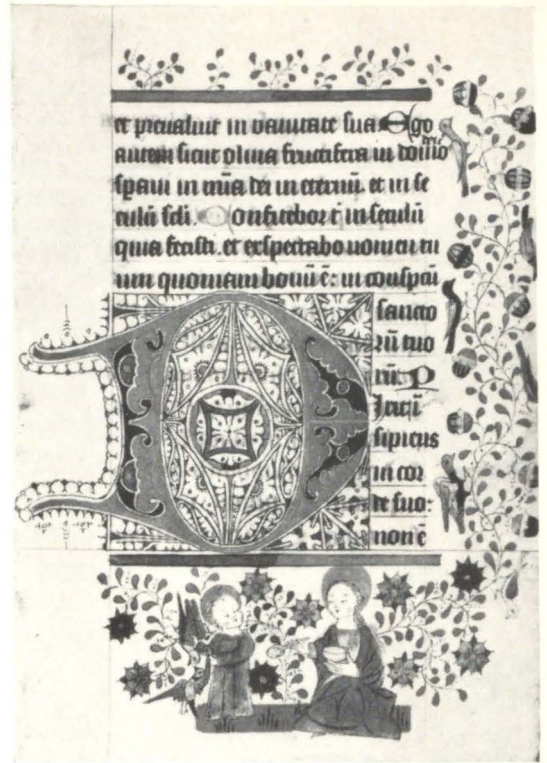 et preualuit in uanitate sua Ego
dei
autem sicut oliua fructifera in domo
spaui in mīa dei in eternū. et in se
culū scli. Confitebor t in seculū
quia fecisti. et exspectabo nomen tu
um quoniam bonū ē: in conspcū
sancto
rū tuo
rū: D
Ixit ī
sipiens
in cor
de suo:
non ē